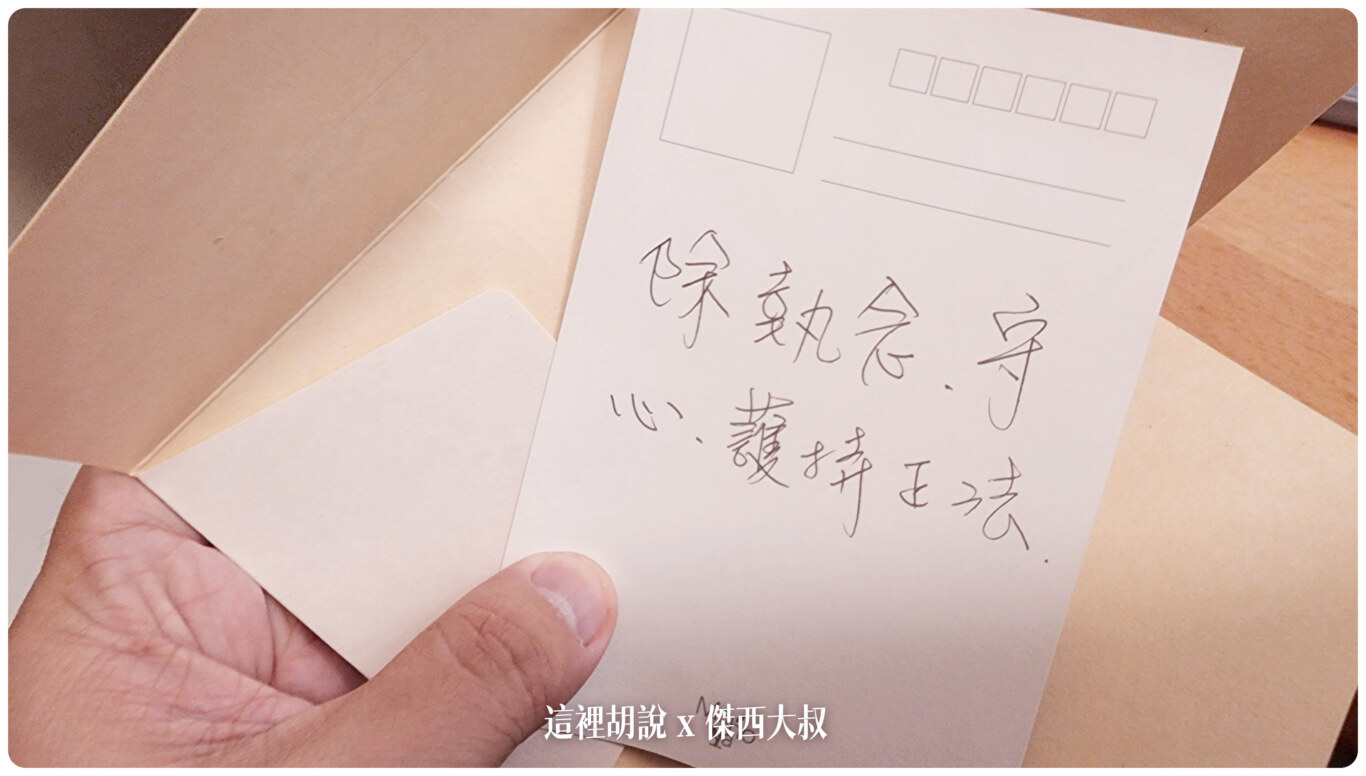 除執念.守
心.護持正法.
這裡胡說 x 傑西大叔